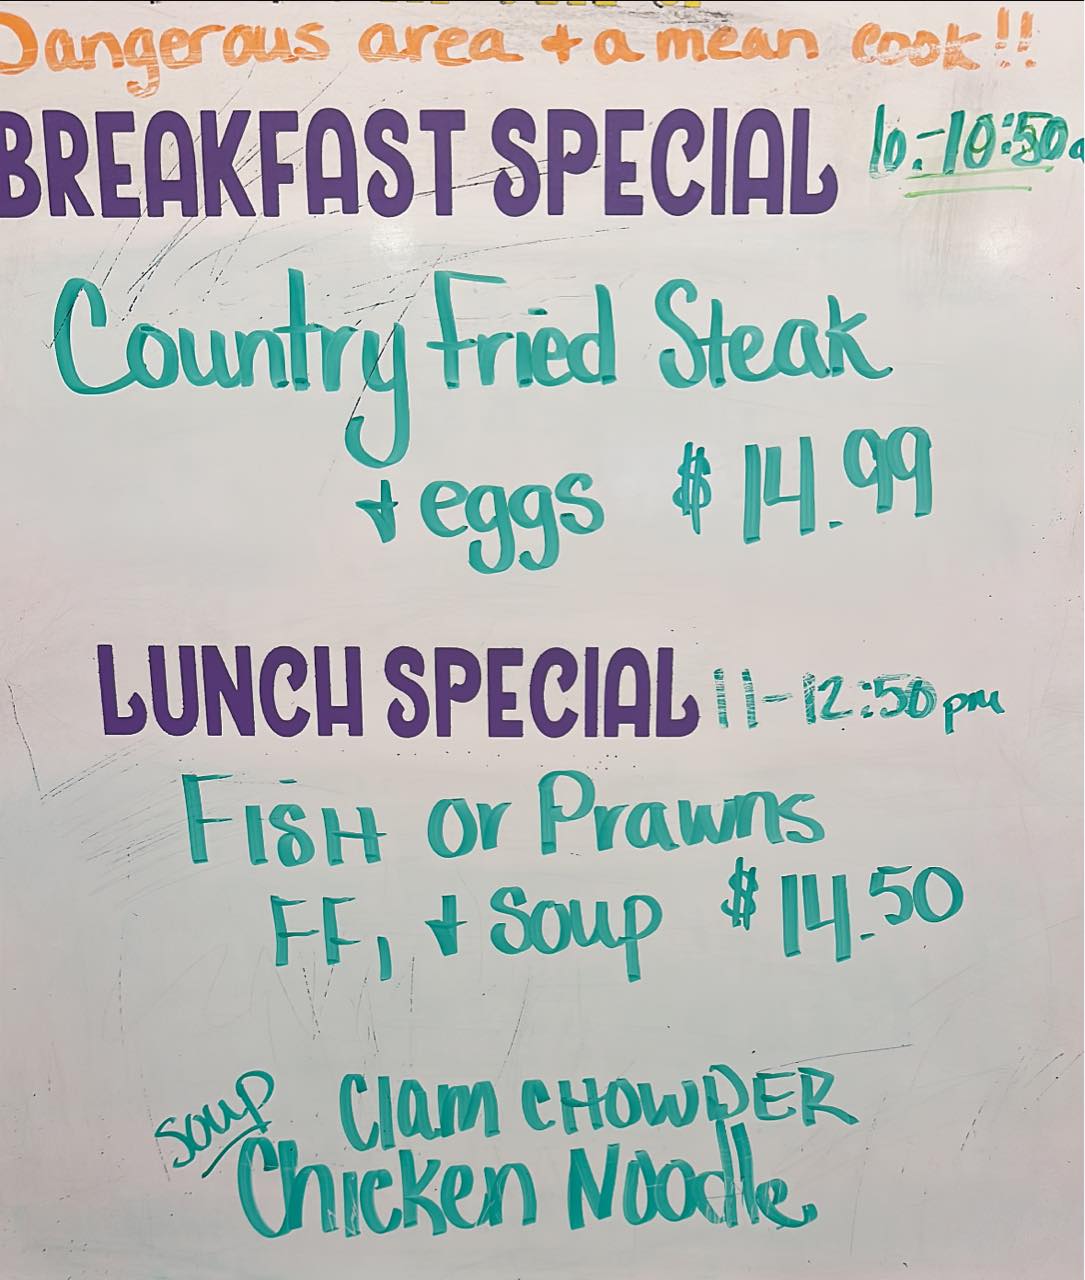 Dangerous area + a mean cook!!
BREAKFAST SPECIAL 6-10:50a
Country Fried Steak
+ eggs $14.99
LUNCH SPECIAL 11-12:50pm
FISH or Prawns
FF, + Soup $14.50
Soup Clam CHOWDER
Chicken Noodle